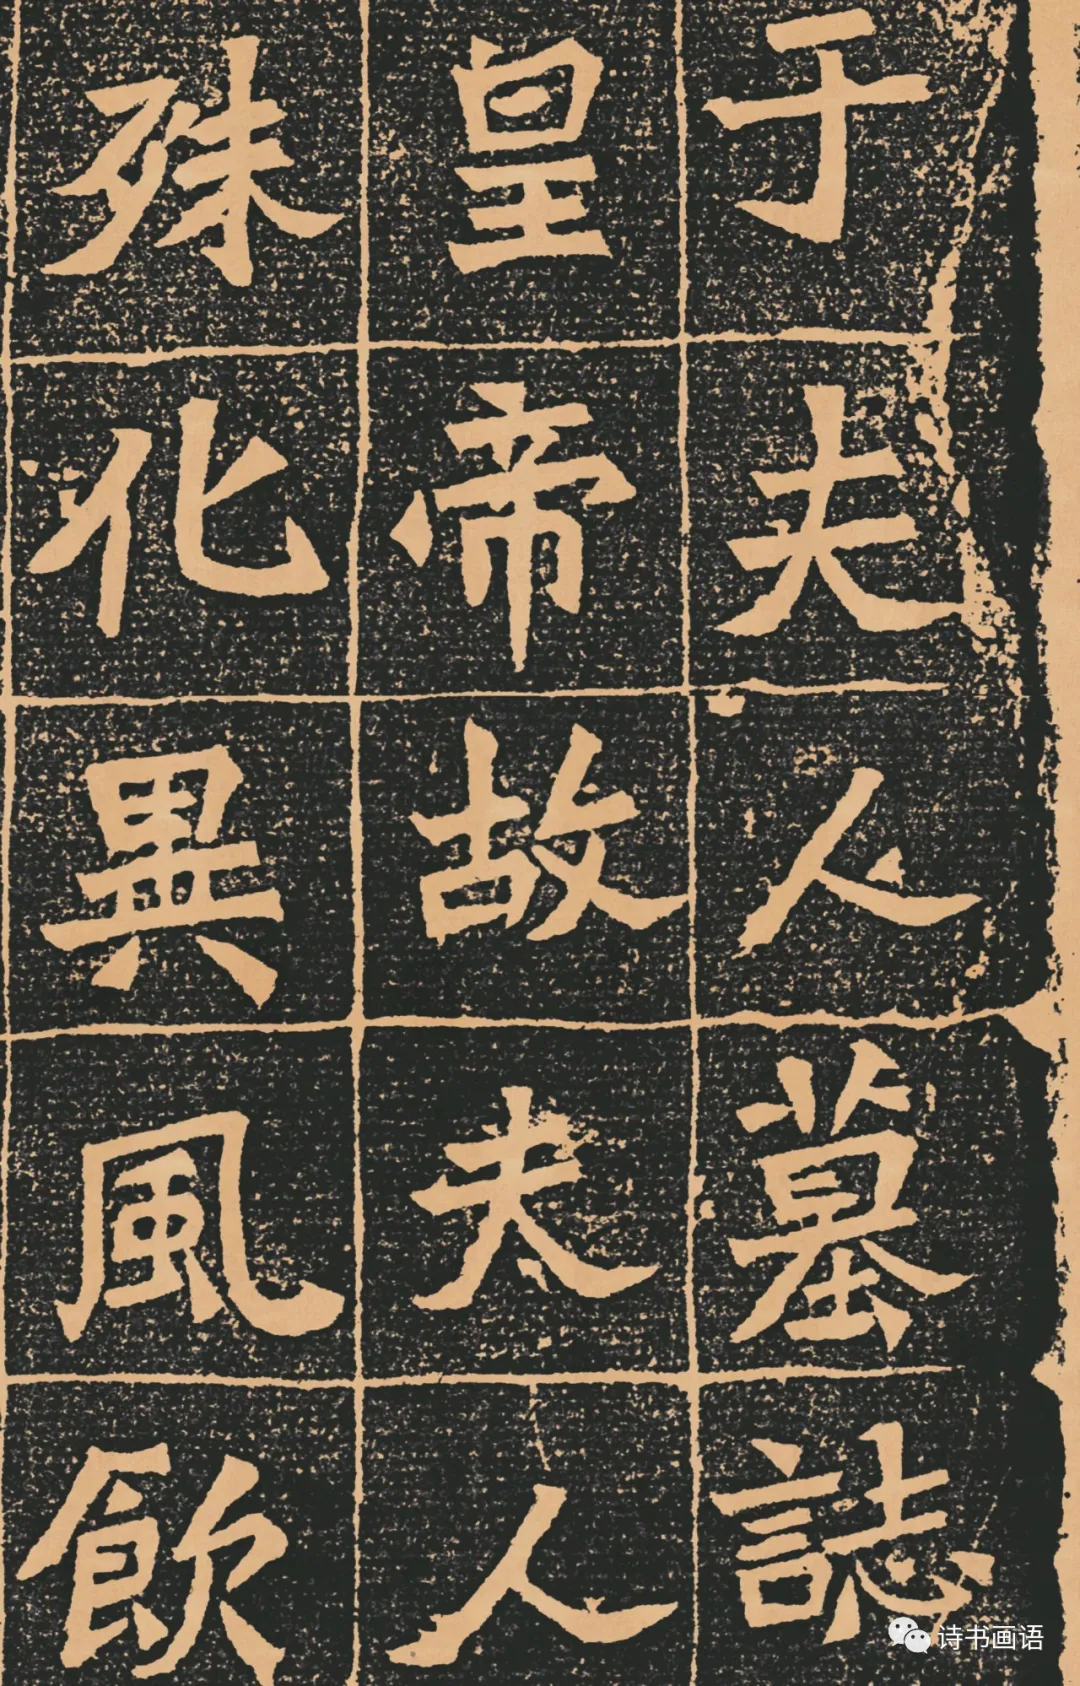 于夫人墓誌
皇帝故夫人
殊化異風飲
诗书画语